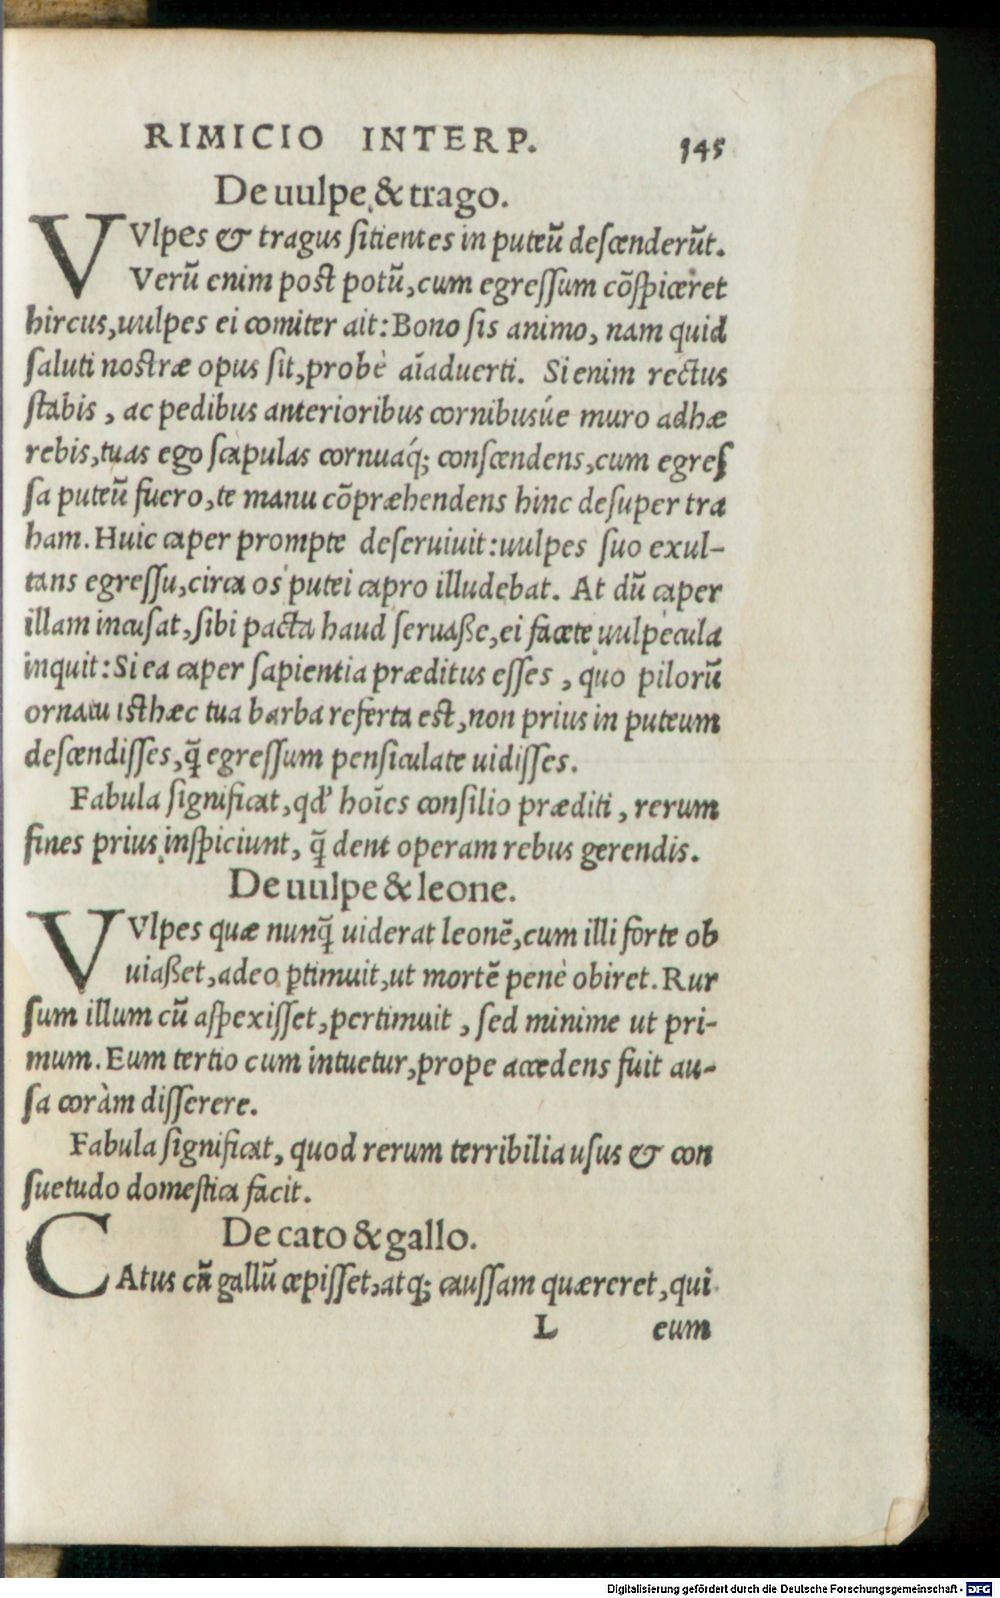 RIMICIO INTERP. 145
De uulpe & trago.
VVlpes & tragus sitientes in puteū descenderūt.
Verū enim post potū, cum egressum cōspiceret
hircus, uulpes ei comiter ait: Bono sis animo, nam quid
saluti nostræ opus sit, probè aīaduerti. Si enim rectus
stabis, ac pedibus anterioribus cornibusúe muro adhæ
rebis, tuas ego scapulas cornuaq́; conscendens, cum egres
sa puteū fuero, te manu cōpræhendens hinc desuper tra
ham. Huic caper prompte deseruiuit: uulpes suo exul-
tans egressu, circa os putei capro illudebat. At dū caper
illam incusat, sibi pacta haud seruaße, ei facete uulpecula
inquit: Si ea caper sapientia præditus esses, quo pilorū
ornatu isthæc tua barba referta est, non prius in puteum
descendisses, q̄ egressum pensiculate uidisses.
Fabula significat, qd' hoīes consilio præditi, rerum
fines prius inspiciunt, q̄ dent operam rebus gerendis.
De uulpe & leone.
VVlpes quæ nunq̄ uiderat leonē, cum illi forte ob
uiaßet, adeo ꝑtimuit, ut mortē penè obiret. Rur
sum illum cū aspexisset, pertimuit, sed minime ut pri-
mum. Eum tertio cum intuetur, prope accedens fuit au-
sa coràm disserere.
Fabula significat, quod rerum terribilia usus & con
suetudo domestica facit.
De cato & gallo.
CAtus cū gallū cepisset, atq; caussam quæreret, qui
L eum
Digitalisierung gefördert durch die Deutsche Forschungsgemeinschaft - DFG